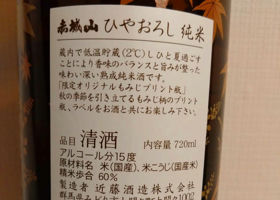 赤城山 ひやおろし 純米
蔵内で低温貯蔵（2℃）しひと夏過ごす
ことにより香味のバランスと旨みが整った
味わい深い熟成純米酒です。
「限定オリジナルもみじプリント瓶」
秋の季節を引き立てるもみじ柄のプリント
瓶、ラベルをお酒と共にお楽しみ下さい。
品目 清酒 内容量 720ml
アルコール分15度
原材料名 米（国産）、米こうじ（国産米）
精米歩合 60%
製造者 近藤酒造株式会社
群馬県みどり市大間々町大間々1002